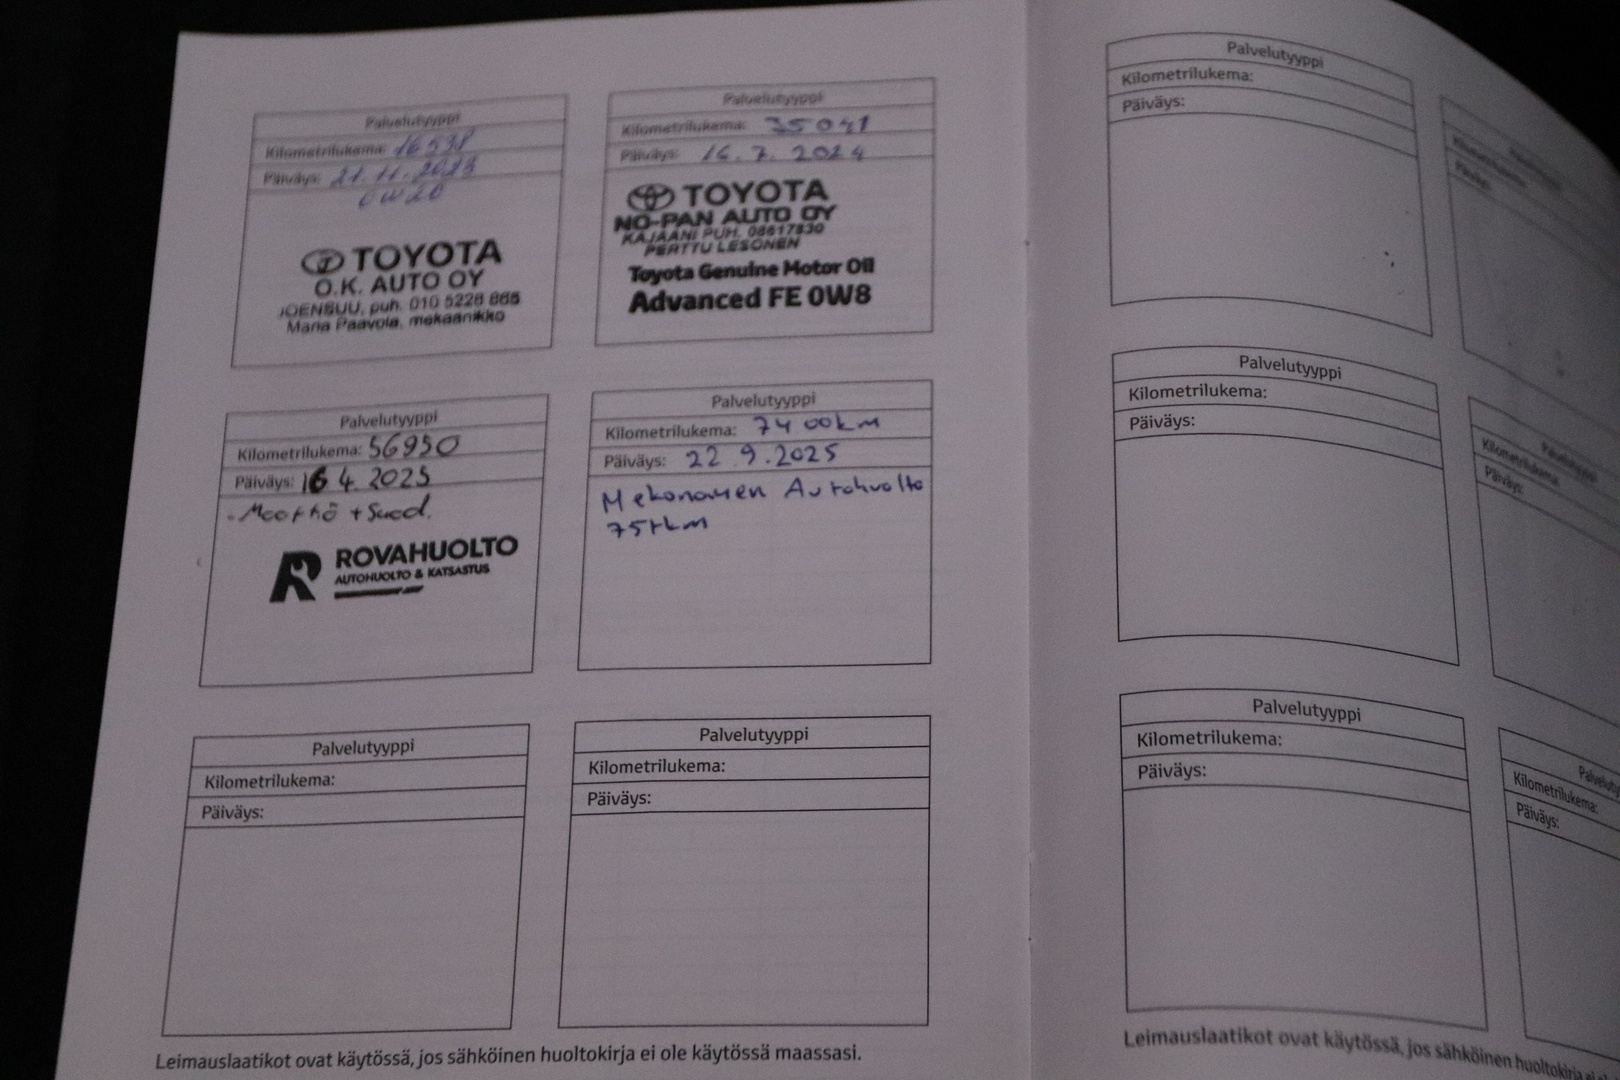 Palvelutyyppi
Kilometrilukema: 16538
Päiväys: 21.11.2023
0W20
TOYOTA
O.K. AUTO OY
JOENSUU, puh. 010 5228 865
Maria Paavola, mekaanikko
Palvelutyyppi
Kilometrilukema: 35041
Päiväys: 16.7.2024
TOYOTA
NO-PAN AUTO OY
KAJAANI PUH. 08617830
PERTTU LESONEN
Toyota Genuine Motor Oil
Advanced FE 0W8
Palvelutyyppi
Kilometrilukema: 56950
Päiväys: 16 4. 2025
+ Suod.
ROVAHUOLTO
AUTOHUOLTO & KATSASTUS
Palvelutyyppi
Kilometrilukema: 7400km
Päiväys: 22 9.2025
Mekonomen Autohuolto
75tkm
Palvelutyyppi
Kilometrilukema:
Päiväys:
Palvelutyyppi
Kilometrilukema:
Päiväys:
Leimauslaatikot ovat käytössä, jos sähköinen huoltokirja ei ole käytössä maassasi.
Palvelutyyppi
Kilometrilukema:
Päiväys:
Palvelutyyppi
Kilometrilukema:
Päiväys:
Palvelutyyppi
Kilometrilukema:
Päiväys:
Palvelutyyppi
Kilometrilukema:
Päiväys:
Palvelutyyppi
Kilometrilukema:
Päiväys:
Kilometrilukema:
Päiväys:
Leimauslaatikot ovat käytössä, jos sähköinen huoltokirja ei